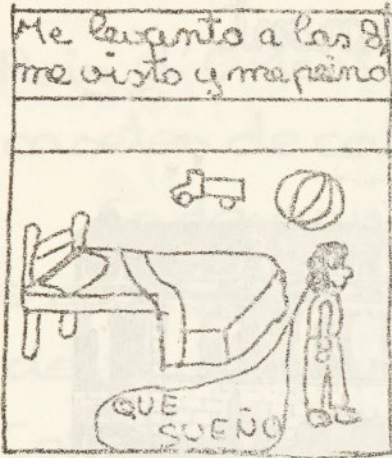 Me levanto a las 8
me visto y me peino
QUE
SUEÑO